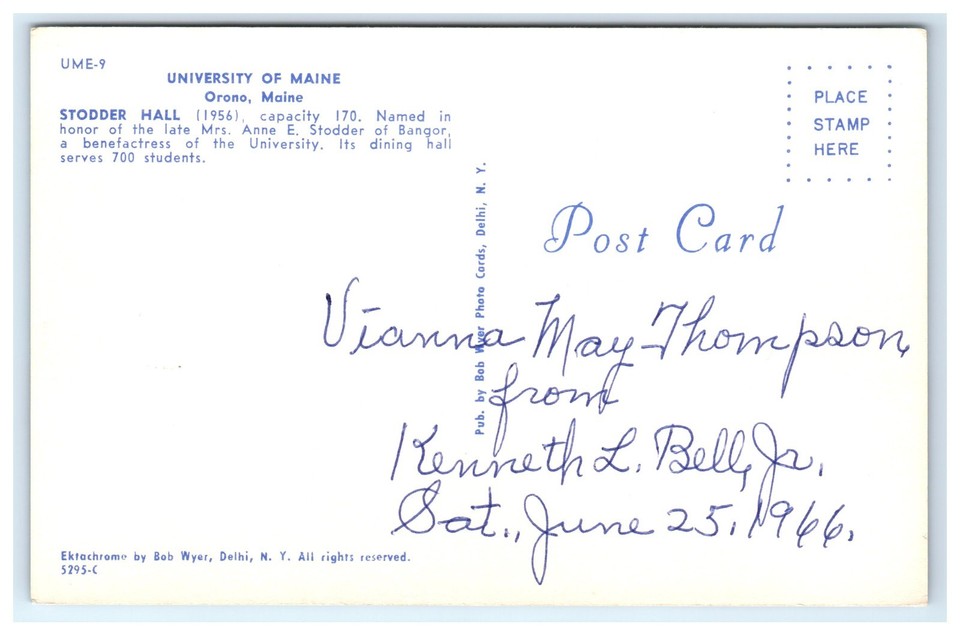 UME-9
UNIVERSITY OF MAINE
Orono, Maine
STODDER HALL (1956), capacity 170. Named in
honor of the late Mrs. Anne E. Stodder of Bangor,
a benefactress of the University. Its dining hall
serves 700 students.
PLACE
STAMP
HERE
Post Card
Pub. by Bob Wyer Photo Cards, Delhi, N. Y.
Vianna May Thompson,
from
Kenneth L. Bell, Jr.
Sat., June 25, 1966.
Ektachrome by Bob Wyer, Delhi, N. Y. All rights reserved.
5295-C